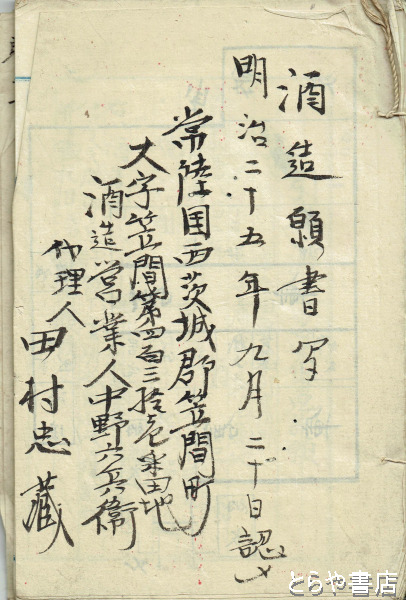 酒造願書写
明治二十五年九月二十日認メ
常陸国西茨城郡笠間町
大字笠間第四百三拾壱番地
酒造営業人中野六兵衛
代理人 田村忠蔵
とらや書店